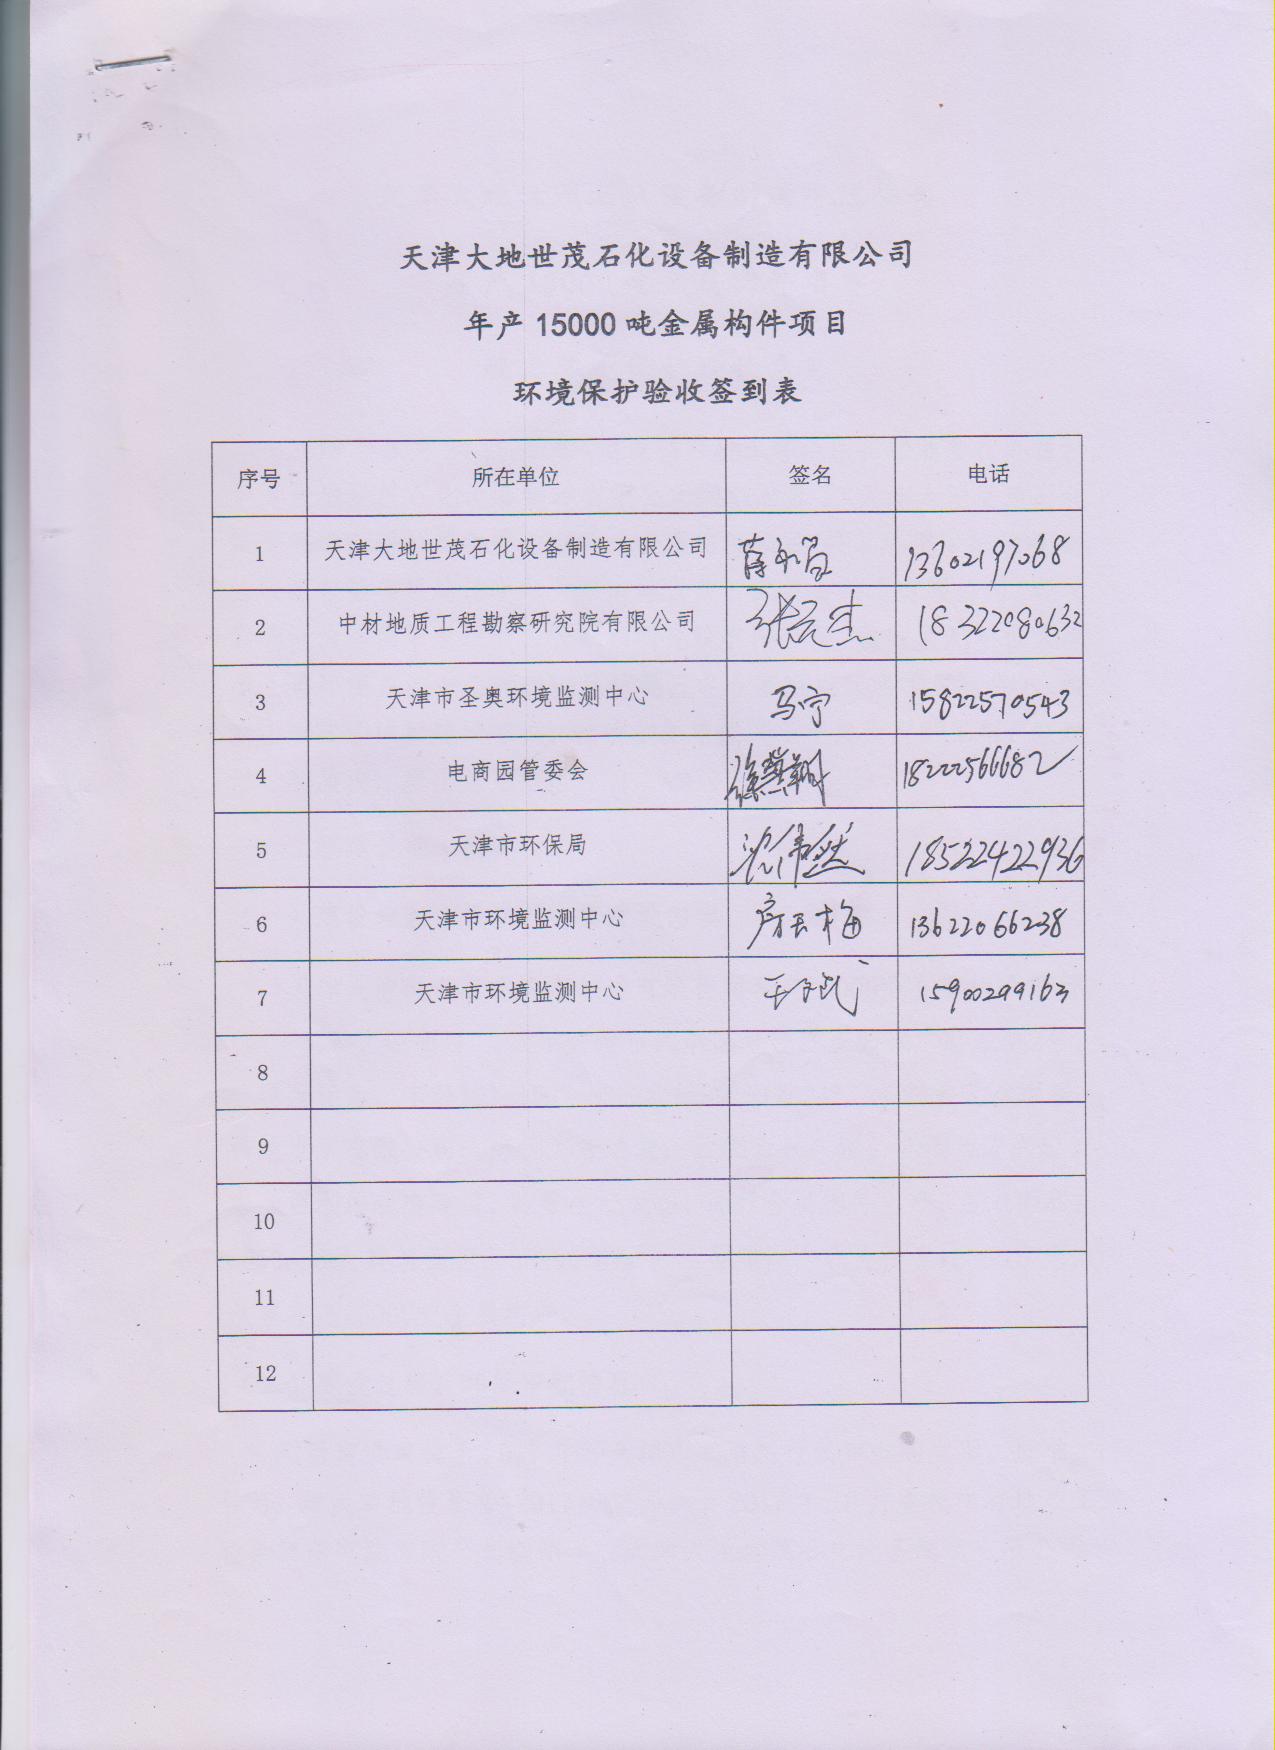 天津大地世茂石化设备制造有限公司
年产 15000 吨金属构件项目
环境保护验收签到表
序号 所在单位 签名 电话
1 天津大地世茂石化设备制造有限公司 13602197068
2 中材地质工程勘察研究院有限公司 张云杰 18322080632
3 天津市圣奥环境监测中心 马宁 15822570543
4 电商园管委会 18222566682
5 天津市环保局 沈伟然 18522422936
6 天津市环境监测中心 13622066238
7 天津市环境监测中心 15900299163
8
9
10
11
12